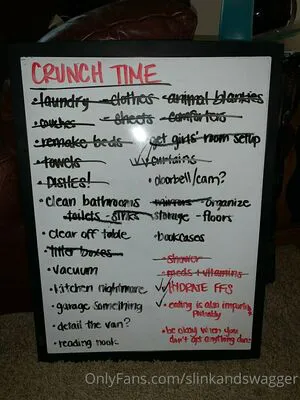 CRUNCH TIME
• laundry - clothes - animal blankies
• couches - sheets - comforters
• remake beds - get girls' room setup
• towels
✓✓ curtains
• DISHES!
• doorbell/cam?
• clean bathrooms
toilets - sinks
mirrors - organize
storage - floors
• clear off table
• bookcases
• litter boxes
• vacuum
• kitchen nightmare
• garage something
• detail the van?
• reading nook
- shower
- meds + vitamins
✓ HYDRATE FFS
✓ • eating is also important,
probably
• be okay when you
don't get anything done
OnlyFans.com/slinkandswagger